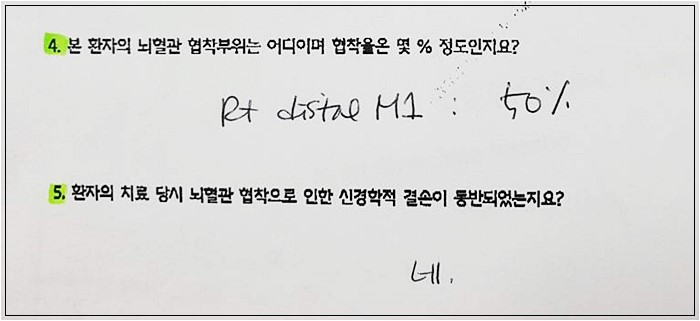 4. 본 환자의 뇌혈관 협착부위는 어디이며 협착율은 몇 % 정도인지요?
Rt distal M1 : 50%
5. 환자의 치료 당시 뇌혈관 협착으로 인한 신경학적 결손이 동반되었는지요?
네.